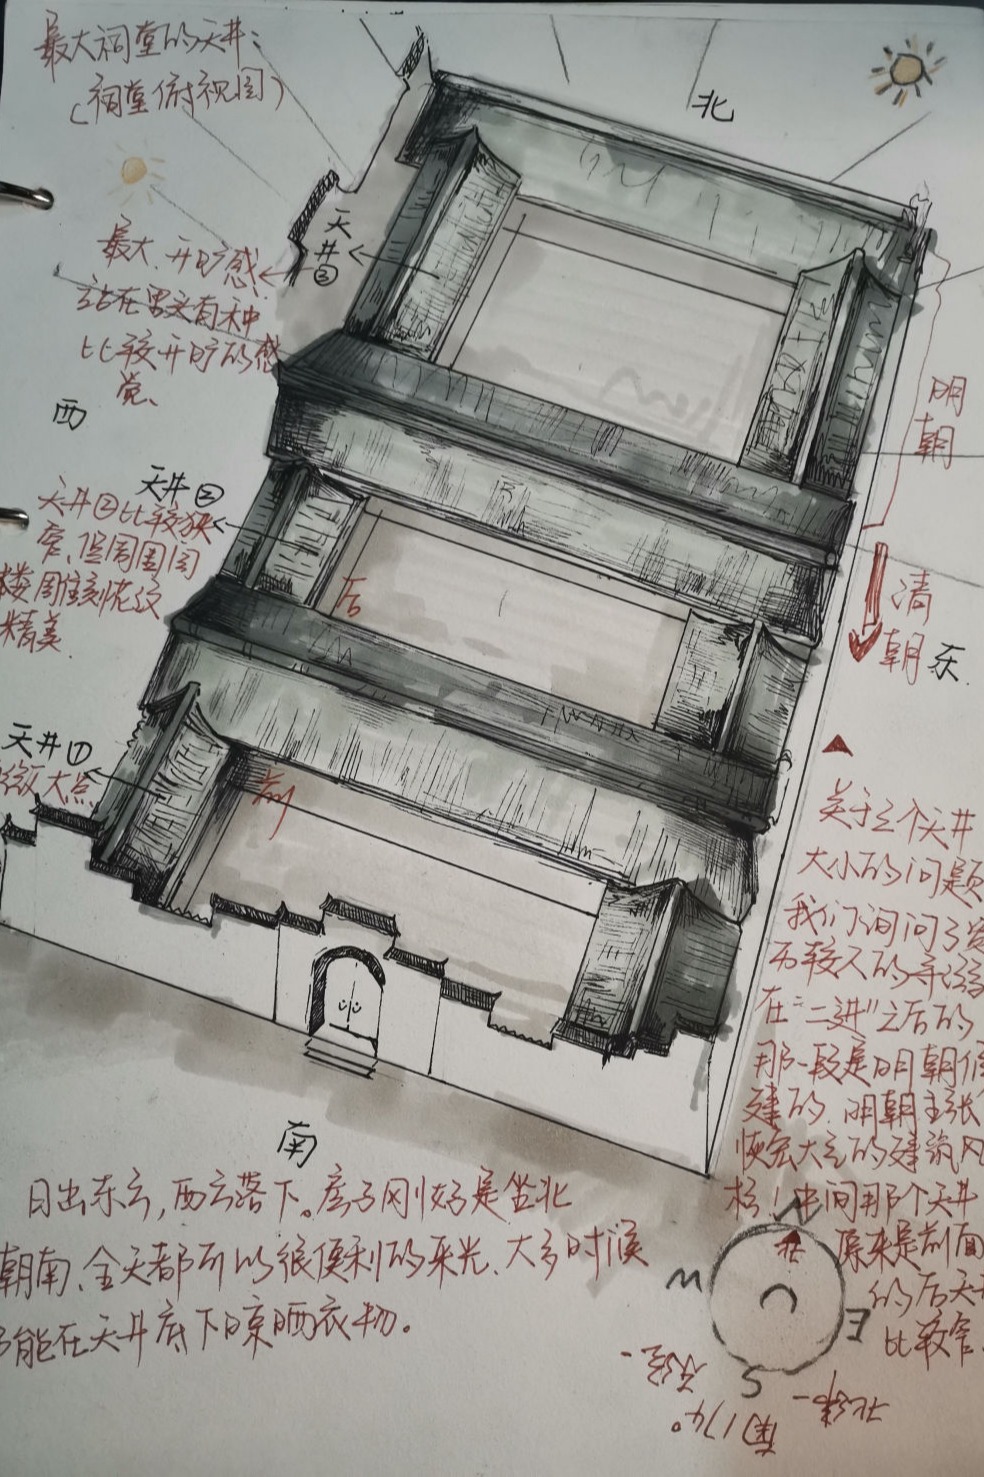 最大祠堂的天井:
(祠堂俯视图)
北
天
井
③
最大、开旷感
站在里头有种
比较开旷的感
觉、
西
明
朝
天井②
天井②比较狭
窄、但周围阁
楼雕刻比较
精美
后
清
朝
东
天井①
较大点
前
关于三个天井
大小的问题
我们询问了
在“二进”之后的
那一段是明朝修
建的、明朝主张
恢宏大气的建筑风
格！中间那个天井
原来是前面
的后天井
比较窄、
南
日出东方，西方落下。房子刚好是坐北
朝南、全天都可以很便利的采光、大多时候
都能在天井底下晾晒衣物。
N
北
W
E
S
东经-
北纬-
南174°